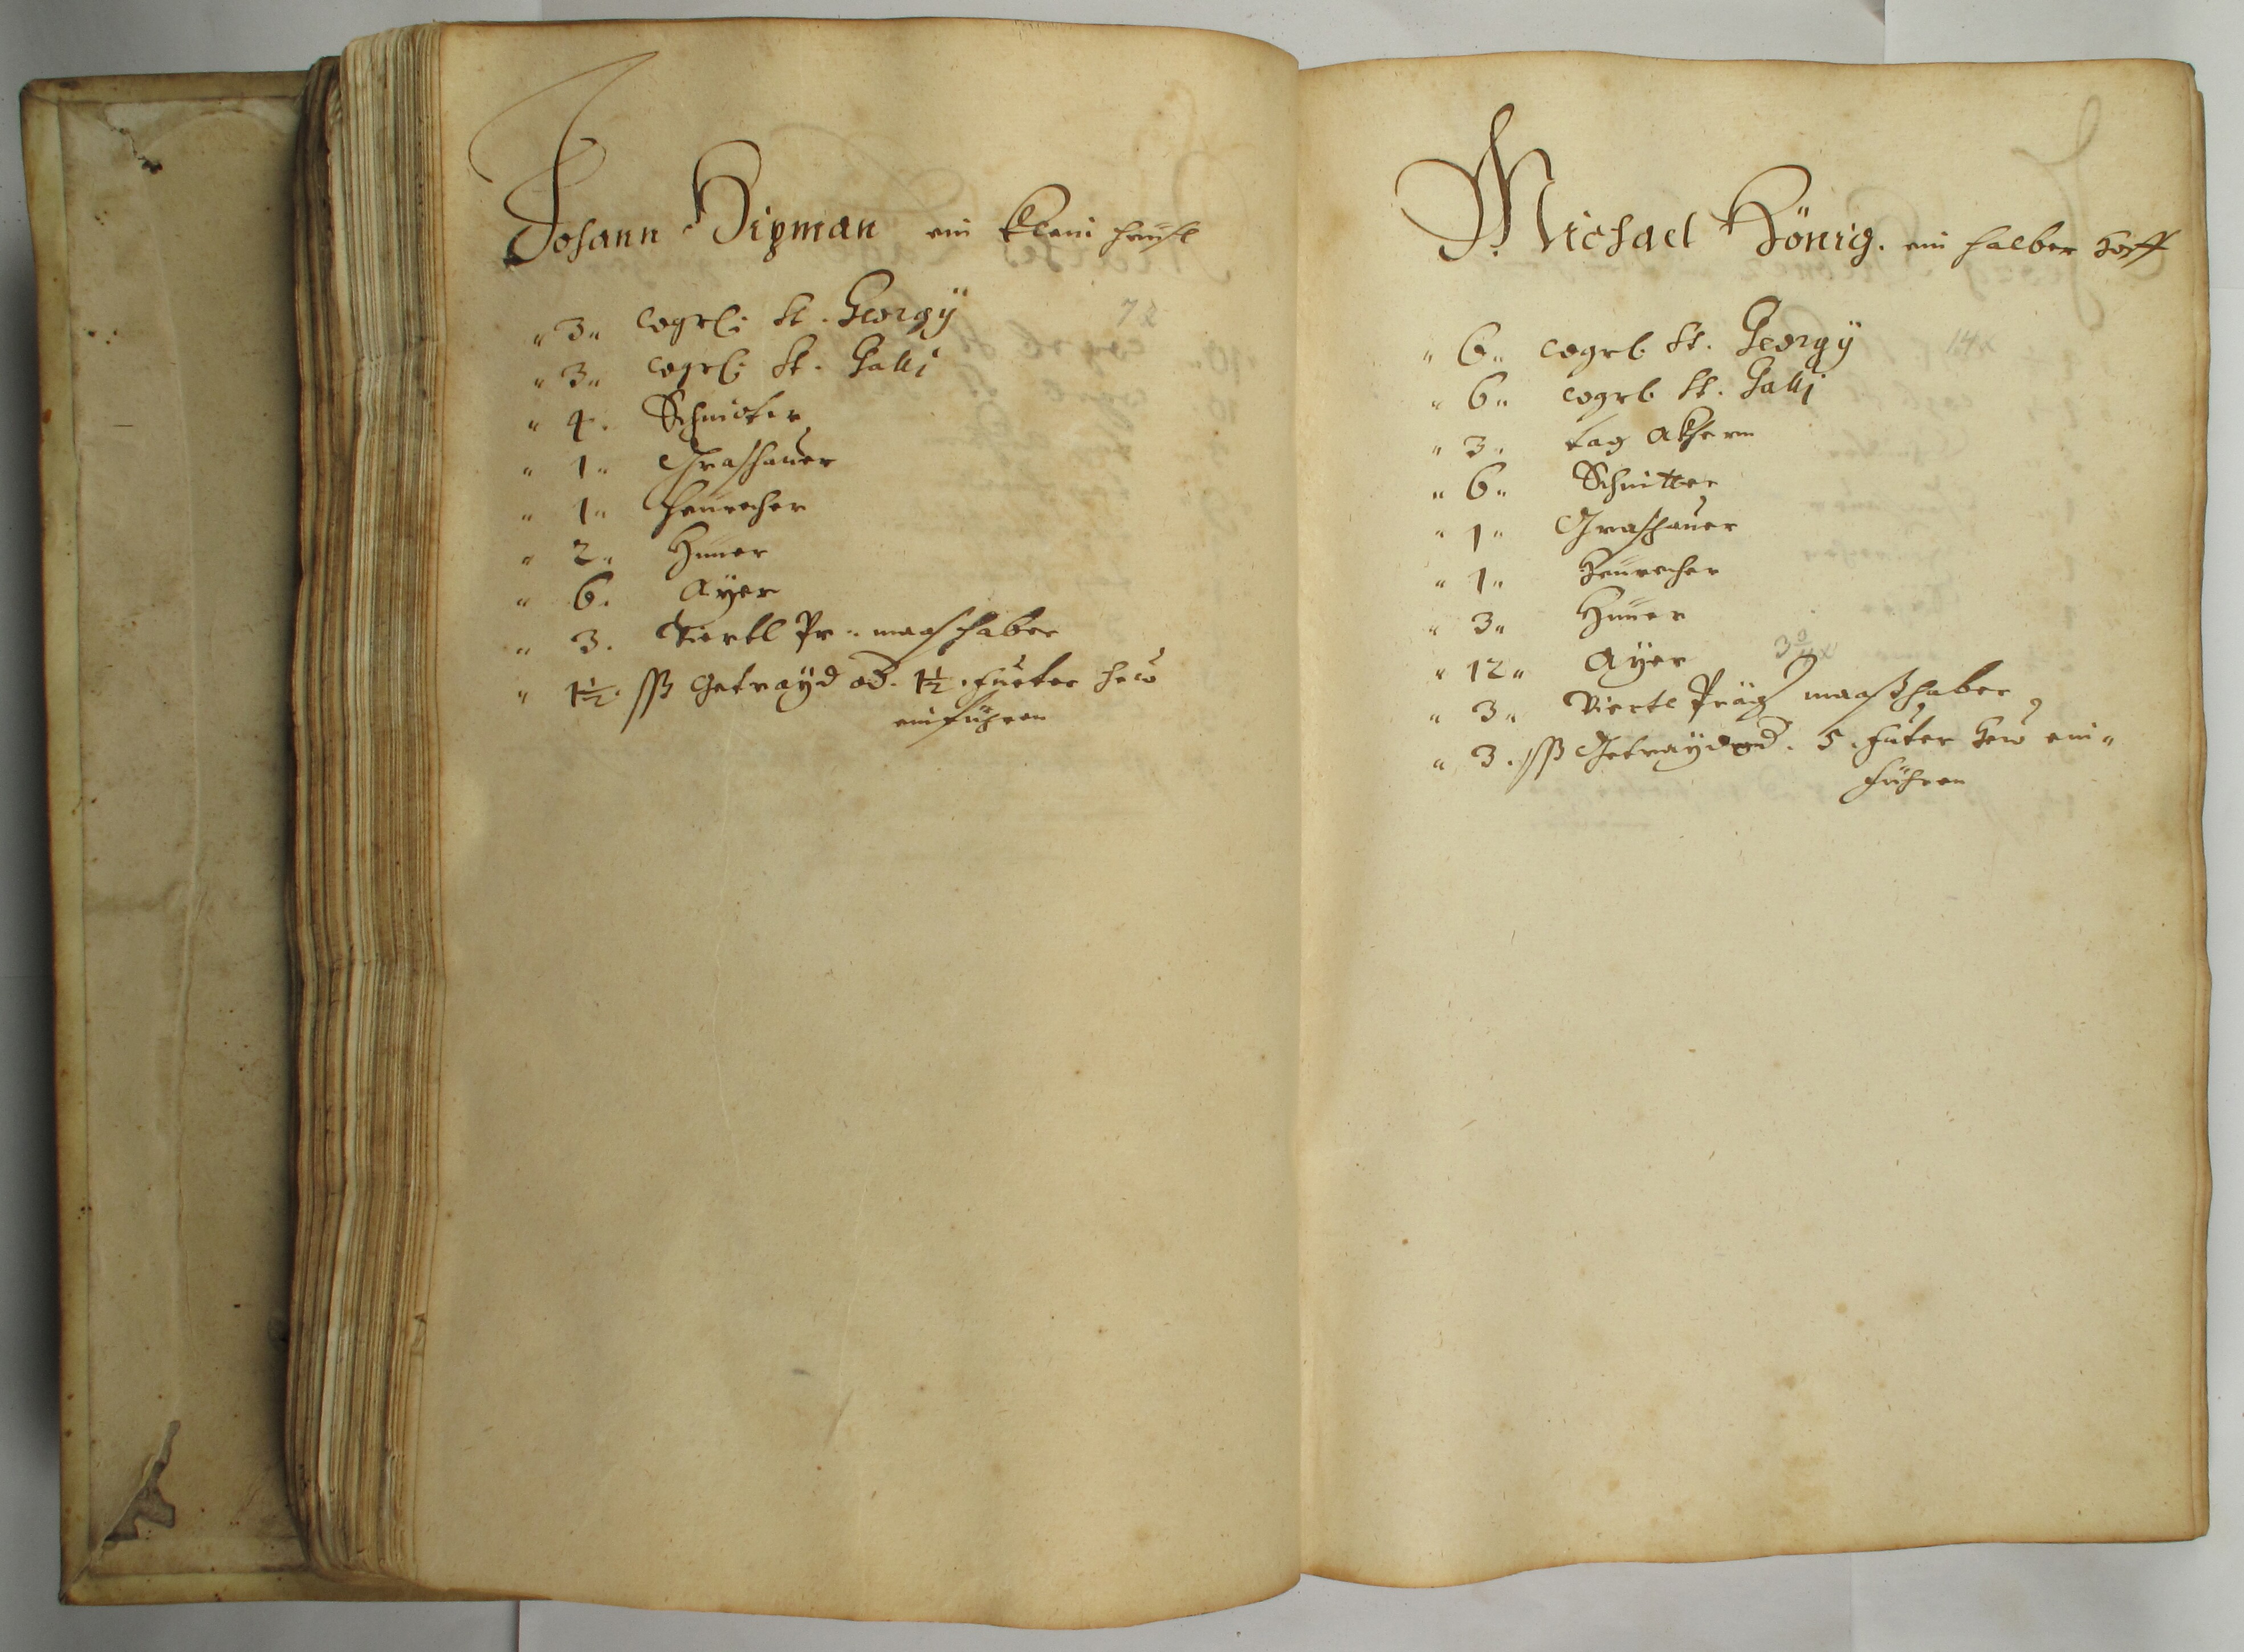 Johann Dipman ein klein heußl
" 3 " wgrl: St. Georgÿ 7 x
" 3 " wgrl: St. Gallj
" 4 . Schnieter
" 1 " Graßhauer
" 1 " Heurecher
" 2 " Hüner
" 6 . Ayer
" 3 . Viertl Pr: maaß haber
" 1½ . ßß Getrayd od. 1½ . fueter hew
einführen
Michael König . ein halber Hoff
" 6 " wgrl. St. Georgÿ 14 x
" 6 " wgrl. St. Gallj
" 3 " tag akhern
" 6 " Schnitter
" 1 " Graßhauer
" 1 " Heurecher
" 3 " Hüner
" 12 " Ayer
" 3 " Viertl Präg maaß haber
" 3 . ßß Getrayd od . 5 . fueter hew ein"
führen